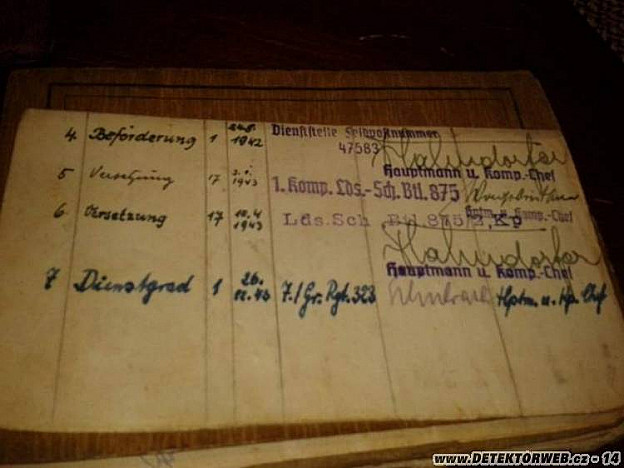 4 Beförderung 1 24.8. 1942 Dienststelle Feldpostnummer
47583
Hauptmann u. Komp.-Chef
5 Versetzung 17 1943 1. Komp. Lds.-Sch. Btl. 875
Hptm. u. Komp.-Chef
6 Versetzung 17 10.4 1943 Lds. Sch. Btl. 875/2. Kp
Hauptmann u. Komp.-Chef
7 Dienstgrad 1 26. 12.43 7./Gr. Rgt. 323 Hptm. u. Kp. Chef
www.DETEKTORWEB.cz - 14